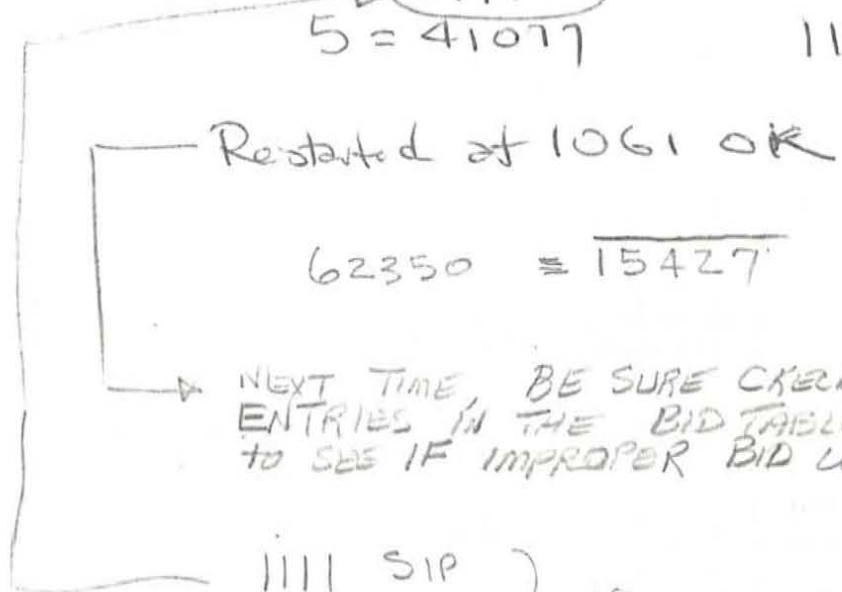 5 = 41077 11
Restarted at 1061 OK
62350 = 15427
NEXT TIME, BE SURE
ENTRIES IN THE BID TABLE
to SEE IF IMPROPER BID
1111 SIP )